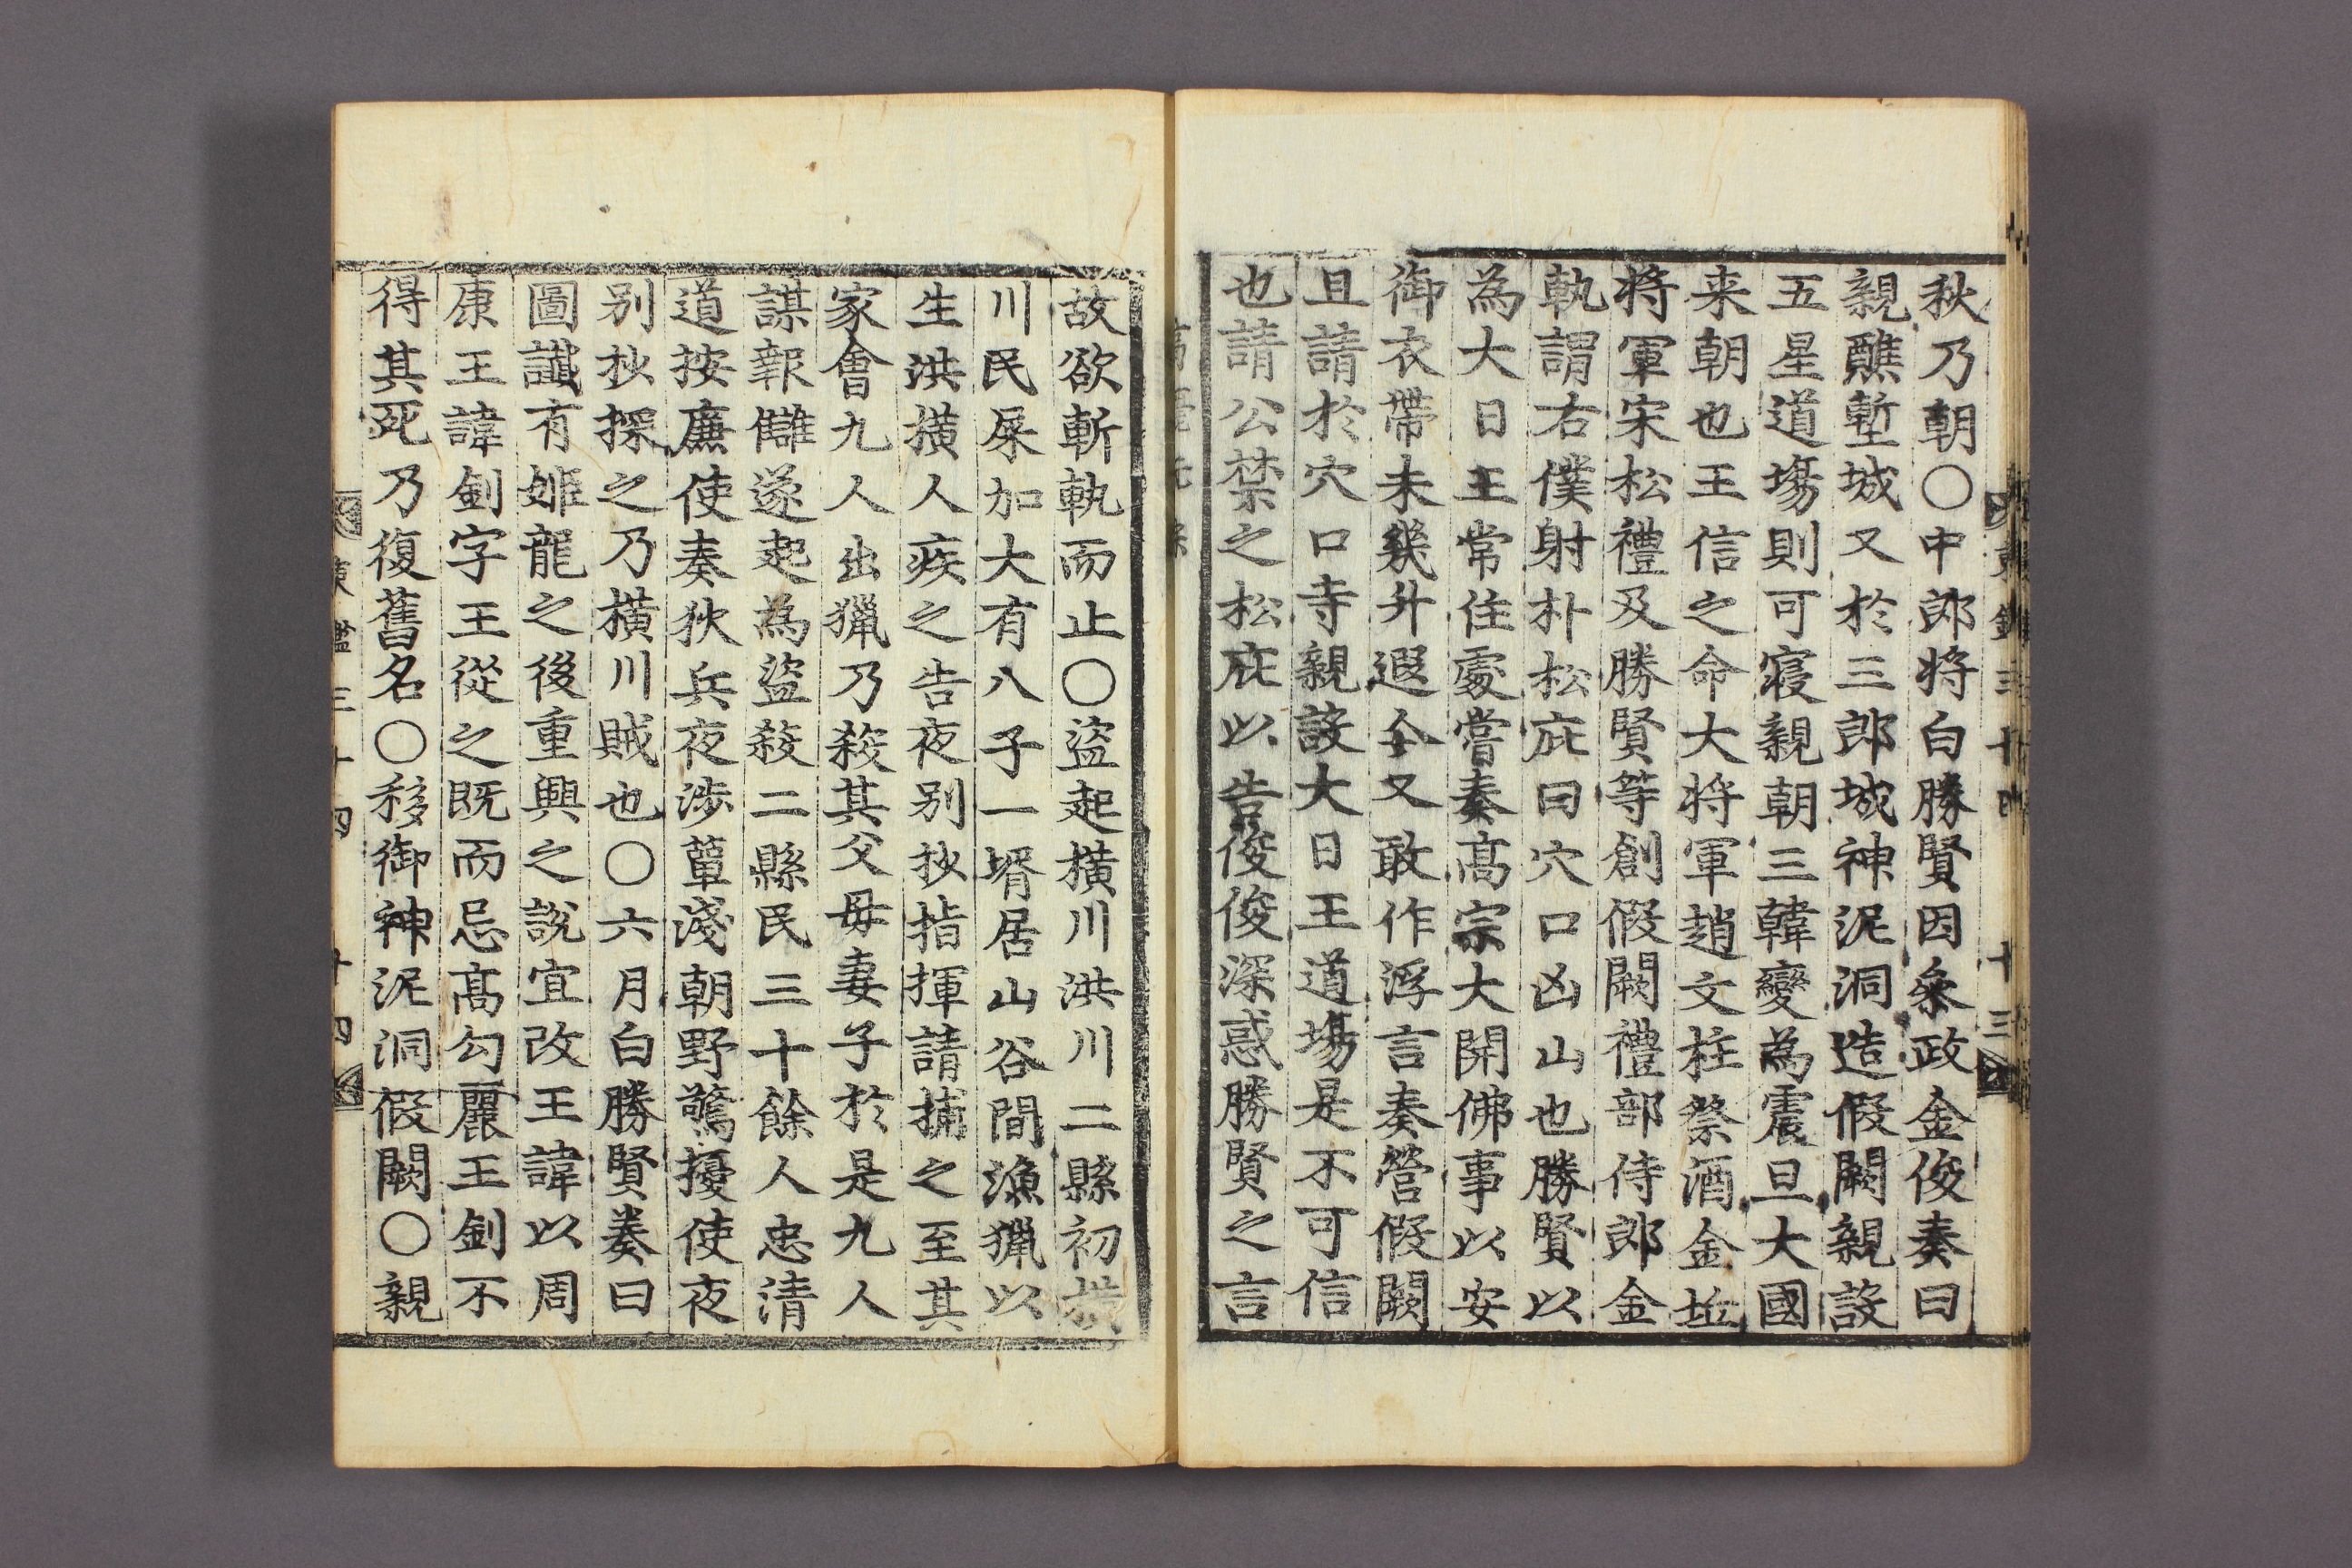 秋乃朝〇中郎将白勝賢因叅政金俊奏曰
親醮塹城又於三郎城神泥洞造假闕親設
五星道場則可寢親朝三韓變為震旦大國
来朝也王信之命大将軍趙文柱祭酒金坵
将軍宋松禮及勝賢等創假闕禮部侍郎金
軌謂右僕射朴松庇曰穴口凶山也勝賢以
為大日王常住處嘗奏髙宗大開佛事以安
御衣帶未幾升遐今又敢作浮言奏營假闕
且請於穴口寺親設大日王道場是不可信
也請公禁之松庇以告俊俊深惑勝賢之言
故欲斬軌而止〇盜起橫川洪川二縣初橫
川民屎加大有八子一壻居山谷間漁獵以
生洪橫人疾之告夜别抄指揮請捕之至其
家會九人出獵乃殺其父母妻子於是九人
謀報讎遂起為盜殺二縣民三十餘人忠清
道按廉使奏狄兵夜涉葦淺朝野驚擾使夜
别抄探之乃橫川賊也〇六月白勝賢奏曰
圖讖有姬龍之後重興之說宜改王諱以周
康王諱釗字王從之既而忌髙勾麗王釗不
得其死乃復舊名〇移御神泥洞假闕〇親